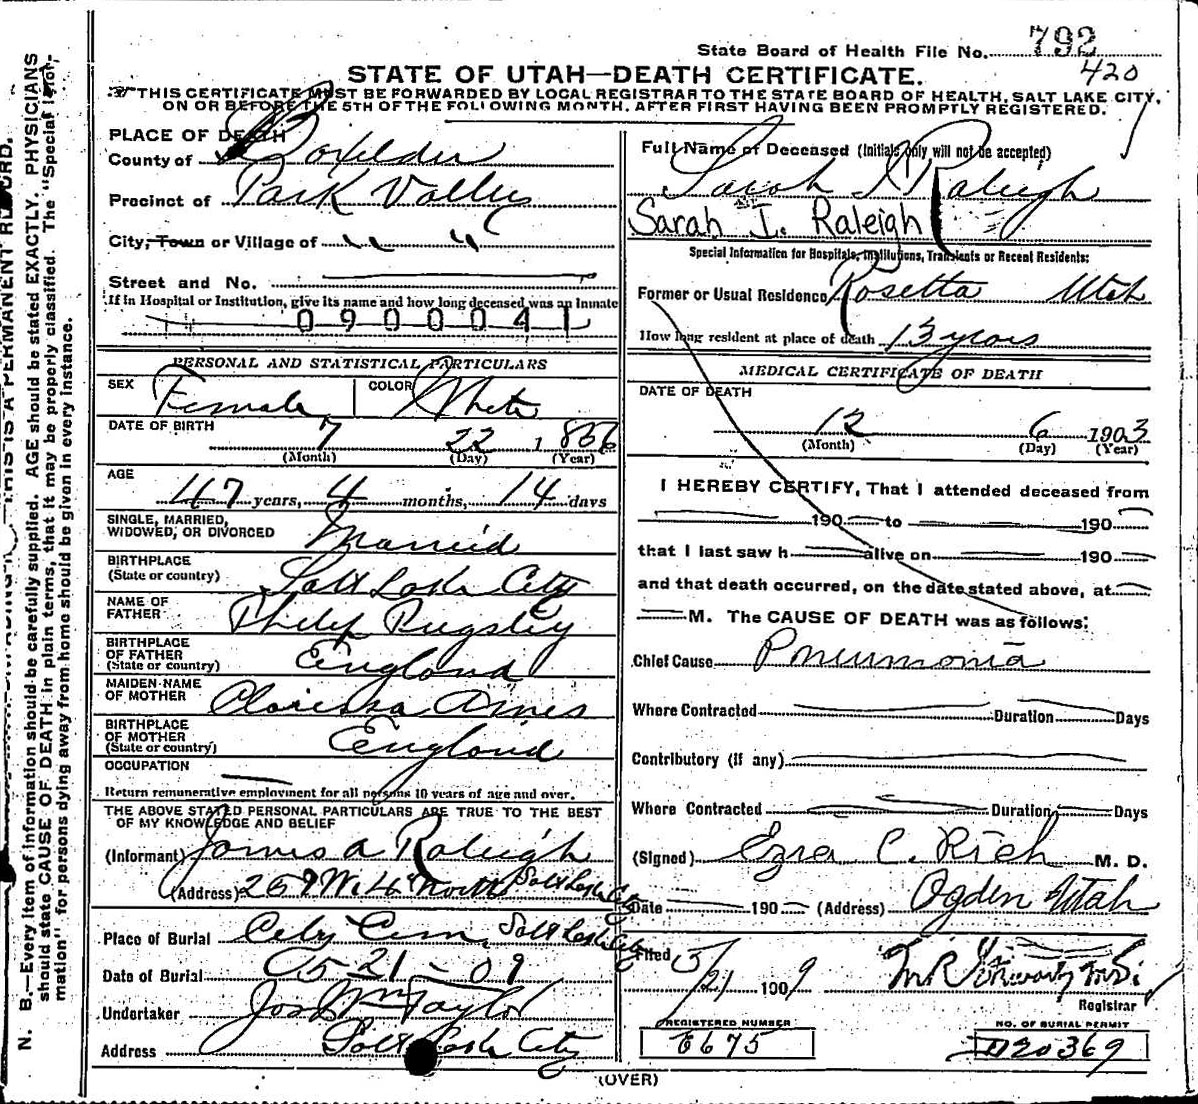 State Board of Health File No. 792
420
STATE OF UTAH—DEATH CERTIFICATE.
THIS CERTIFICATE MUST BE FORWARDED BY LOCAL REGISTRAR TO THE STATE BOARD OF HEALTH, SALT LAKE CITY,
ON OR BEFORE THE 5TH OF THE FOLLOWING MONTH, AFTER FIRST HAVING BEEN PROMPTLY REGISTERED.
PLACE OF DEATH
County of Boxelder
Precinct of Park Valley
City, Town or Village of " "
Street and No.
If in Hospital or Institution, give its name and how long deceased was an Inmate
0900041
PERSONAL AND STATISTICAL PARTICULARS
SEX Female COLOR White
DATE OF BIRTH 7 22 1856
(Month) (Day) (Year)
AGE
47 years, 4 months, 14 days
SINGLE, MARRIED,
WIDOWED, OR DIVORCED Married
BIRTHPLACE
(State or country) Salt Lake City
NAME OF
FATHER Philip Pugsley
BIRTHPLACE
OF FATHER
(State or country) England
MAIDEN NAME
OF MOTHER Clarissa Ames
BIRTHPLACE
OF MOTHER
(State or country) England
OCCUPATION
Return remunerative employment for all persons 10 years of age and over.
THE ABOVE STATED PERSONAL PARTICULARS ARE TRUE TO THE BEST
OF MY KNOWLEDGE AND BELIEF
(Informant) James A Raleigh
(Address) 259 W. 4th North Salt Lake City
Place of Burial City Cem, Salt Lake City
Date of Burial 05-21-09
Undertaker Jos Wm Taylor
Address Salt Lake City
Full Name of Deceased (Initials only will not be accepted)
Sarah I Raleigh
Sarah I. Raleigh
Special Information for Hospitals, Institutions, Transients or Recent Residents:
Former or Usual Residence Rosetta Utah
How long resident at place of death 13 years
MEDICAL CERTIFICATE OF DEATH
DATE OF DEATH
12 6 1903
(Month) (Day) (Year)
I HEREBY CERTIFY, That I attended deceased from
190 to 190
that I last saw h alive on 190
and that death occurred, on the date stated above, at
M. The CAUSE OF DEATH was as follows:
Chief Cause Pneumonia
Where Contracted Duration Days
Contributory (if any)
Where Contracted Duration Days
(Signed) Ezra C. Rich M. D.
Date 190 (Address) Ogden Utah
Filed 5/21 1909
Registrar
REGISTERED NUMBER
6675
NO. OF BURIAL PERMIT
D20369
(OVER)
N. B.—Every item of information should be carefully supplied. AGE should be stated EXACTLY. PHYSICIANS
should state CAUSE OF DEATH in plain terms, that it may be properly classified. The "Special Infor-
mation" for persons dying away from home should be given in every instance.